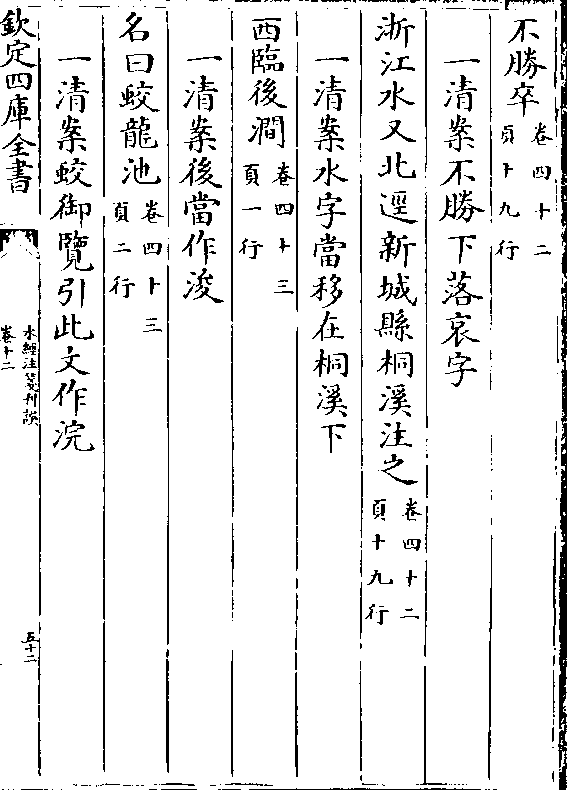 不勝卒卷四十二
頁十九行
一清案不勝下落哀字
浙江水又北逕新城縣桐溪注之卷四十二
頁十九行
一清案水字當移在桐溪下
西臨後澗卷四十三
頁一行
一清案後當作浚
名曰蛟龍池卷四十三
頁二行
一清案蛟御覽引此文作浣
欽定四庫全書
水經注箋刊誤
卷十二
五十二